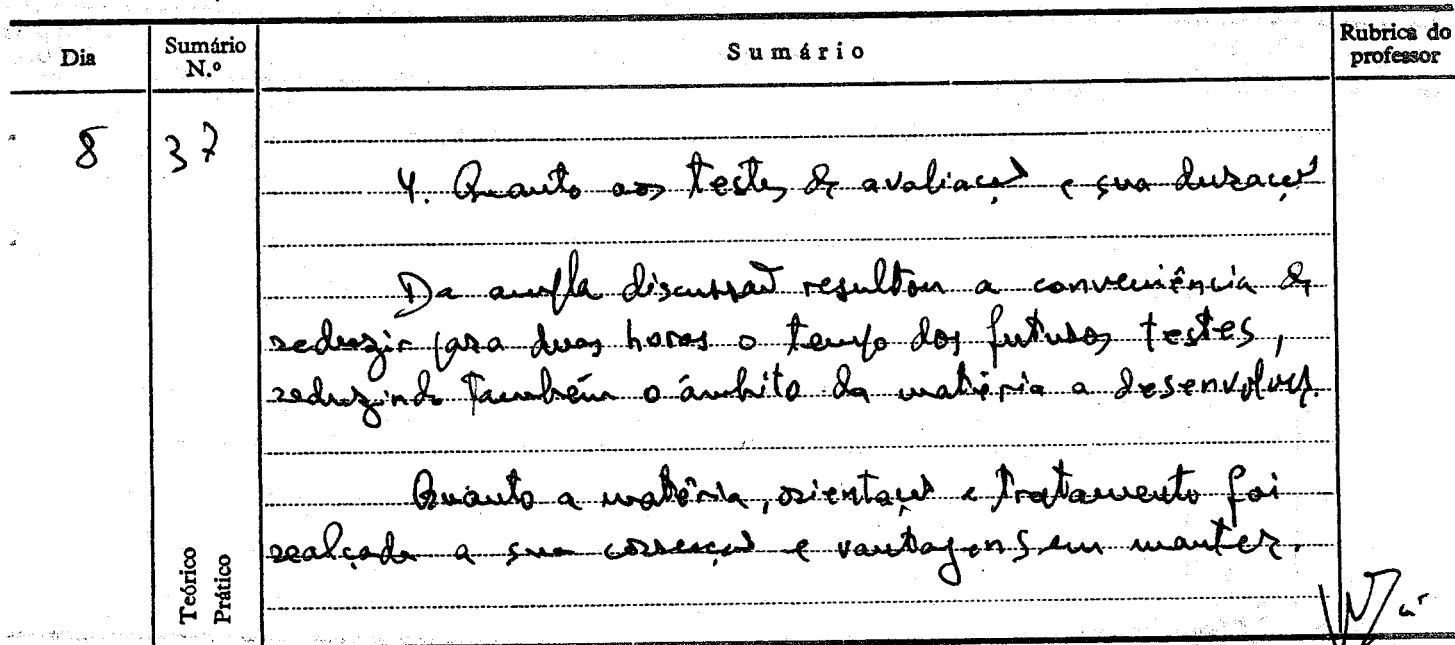 Dia
Sumário N.º
Sumário
Rubrica do professor
8
37
4. Quanto aos testes de avaliação e sua duração
Da ampla discussão resultou a conveniência de
reduzir para duas horas o tempo dos futuros testes,
reduzindo também o âmbito da matéria a desenvolver.
Quanto a matéria, orientação e tratamento foi
realçada a sua correcção e vantagens em manter.
Teórico
Prático